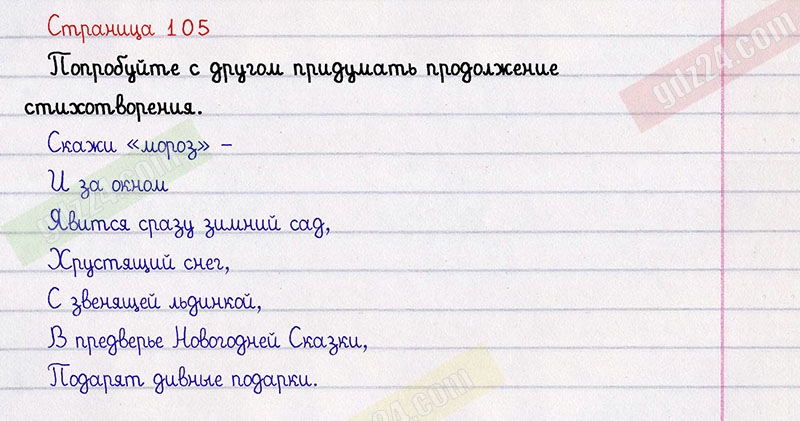 Страница 105
Попробуйте с другом придумать продолжение
стихотворения.
Скажи «мороз» –
И за окном
Явится сразу зимний сад,
Хрустящий снег,
С звенящей льдинкой,
В предверье Новогодней Сказки,
Подарят дивные подарки.
gdz24.com
gdz24.com
gdz24.com